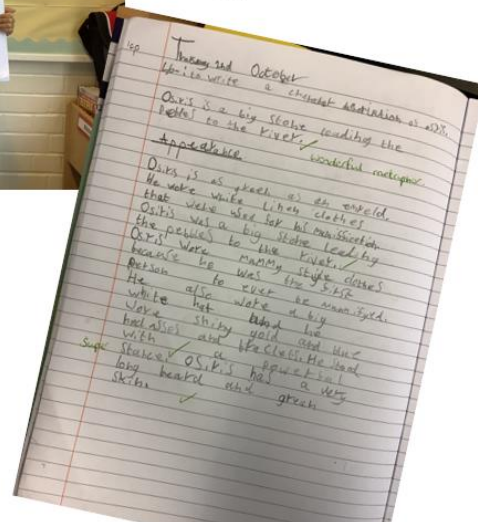 Thursday 2nd October
to write a character of
Osiris is a big stone leading the
pebbles to the river.
wonderful metaphor.
Appearance
Osiris is as green as an
He wore white linen clothes
that were used for his
Osiris was a big stone leading
the pebbles to the river.
Osiris wore mummy style clothes
because he was the first
person to ever be
He also wore a big
white hat and he
wore shiny gold and blue
and He stood
with a powerful
Super stance. Osiris has a very
long beard and green
skin.